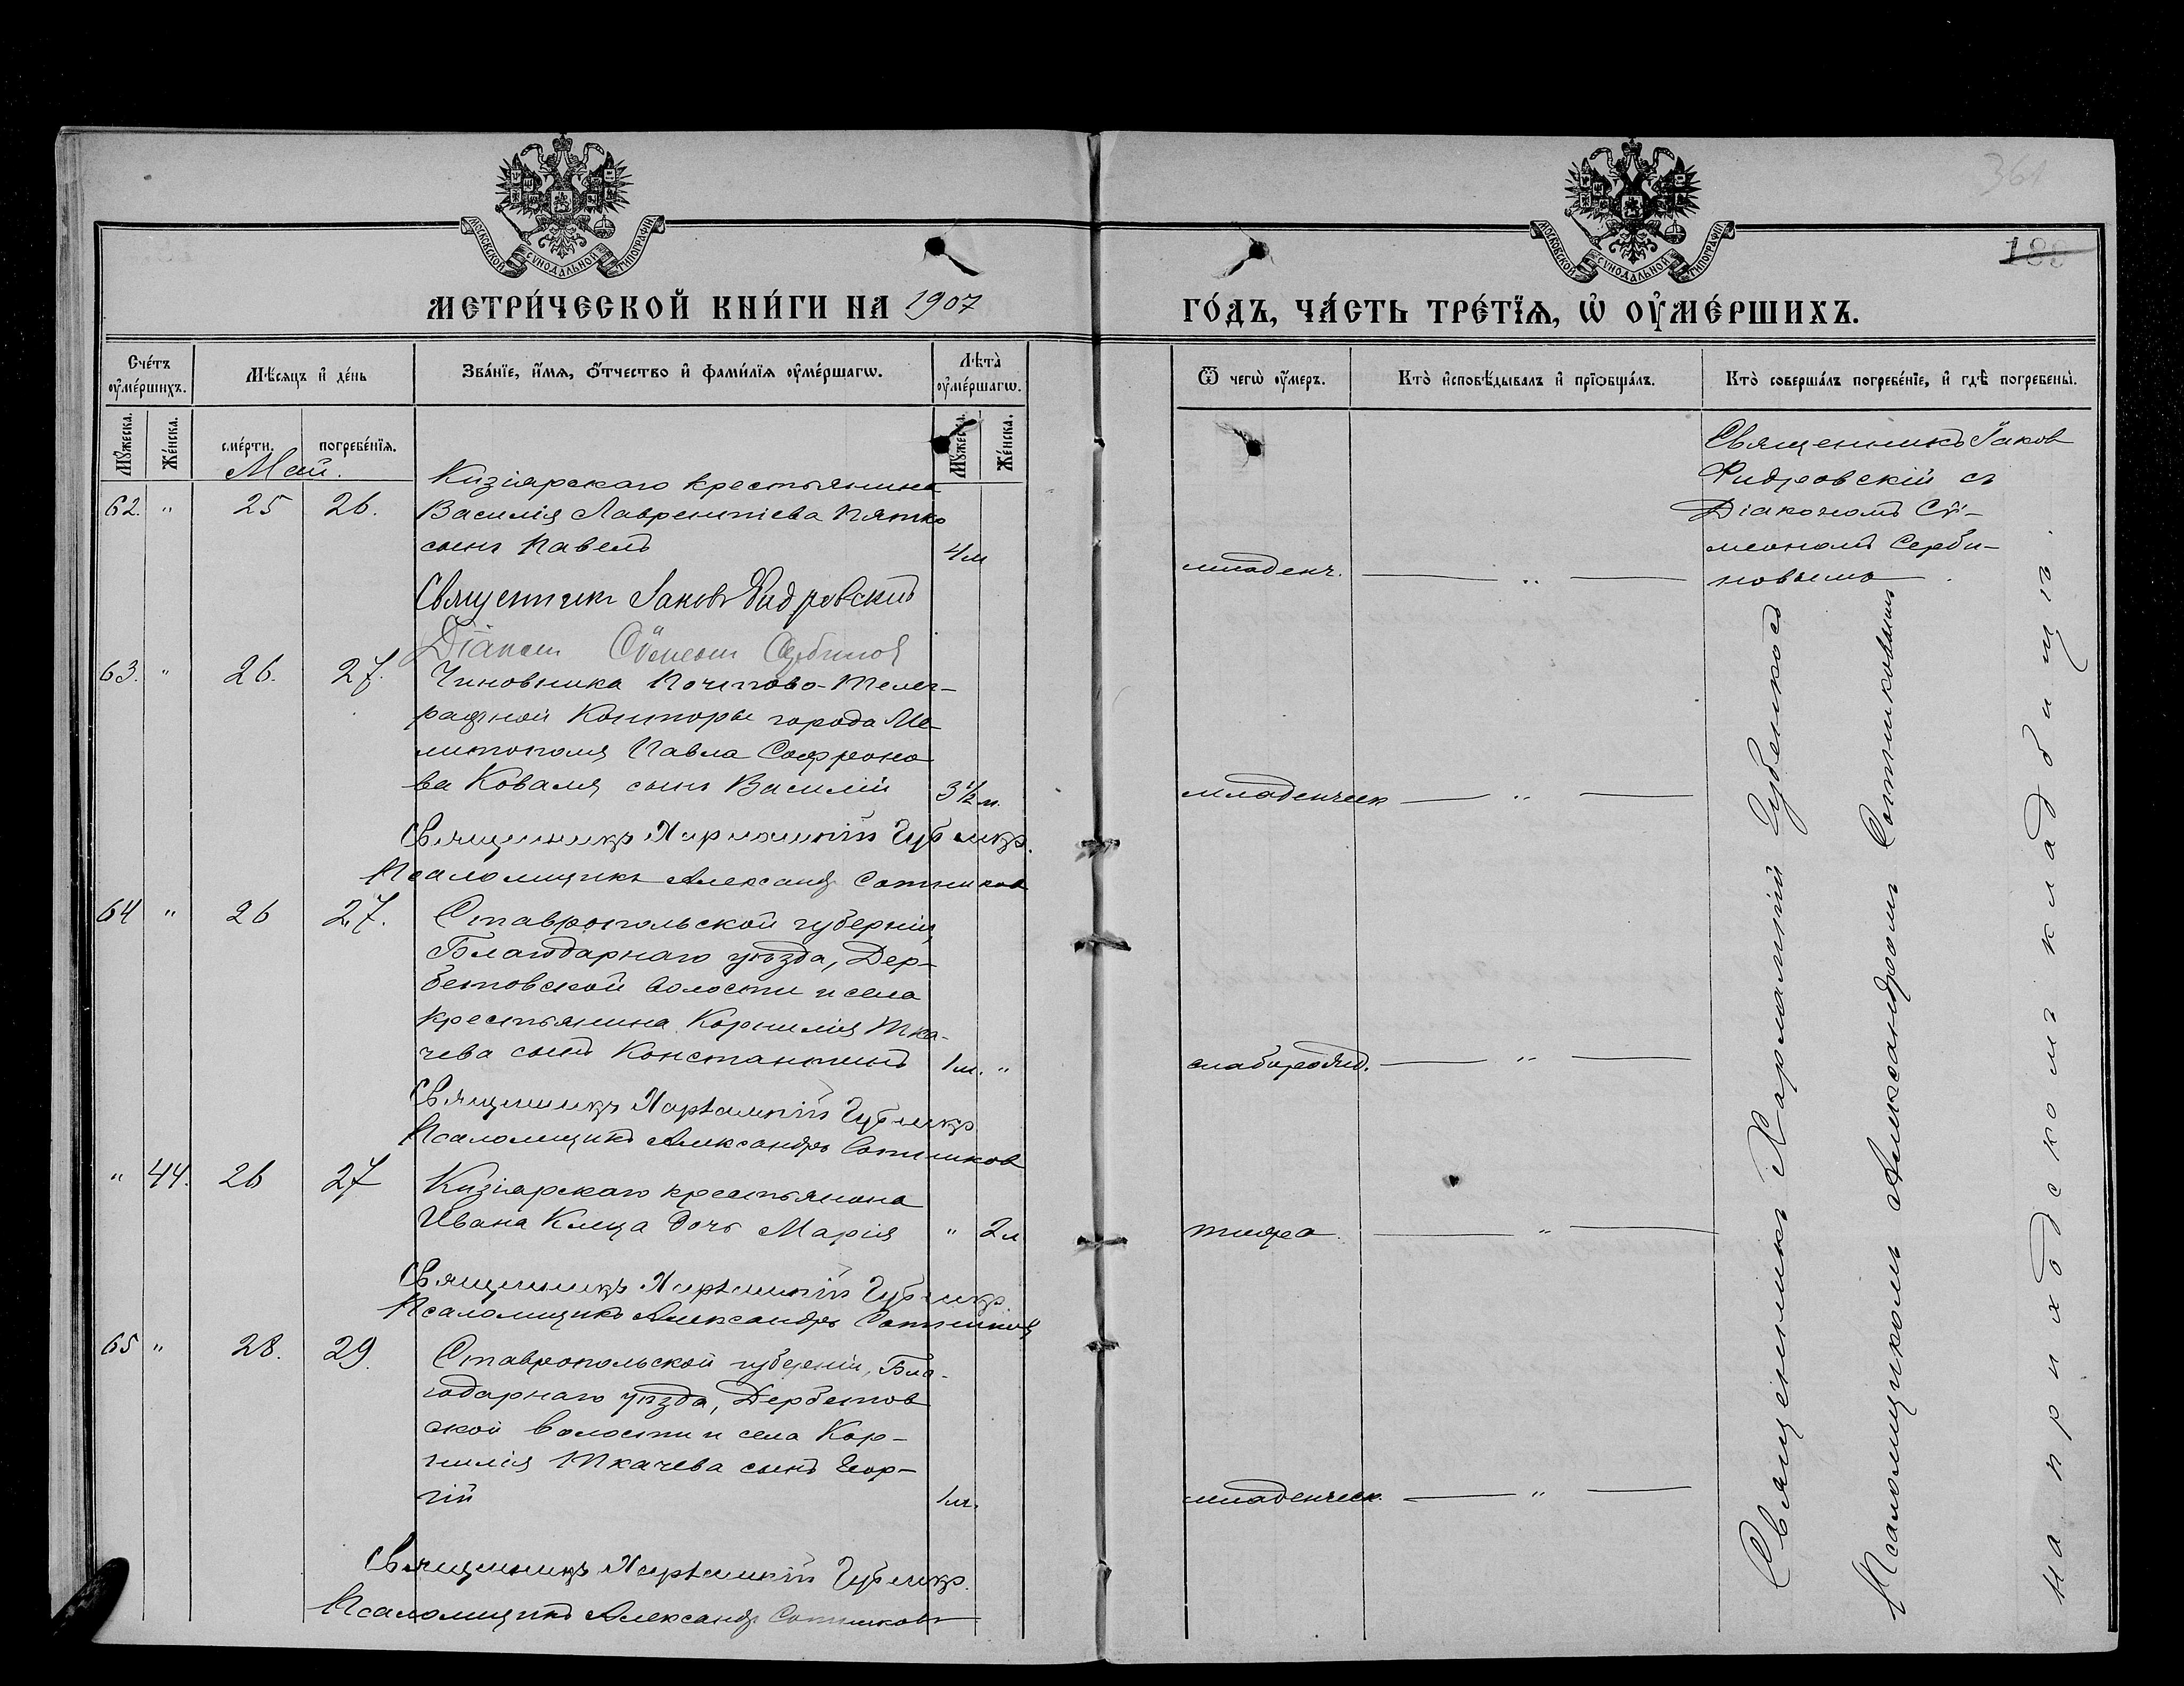 361
188
МОСКОВСКОЙ СѴНОДАЛЬНОЙ ТИПОГРАФІИ
МОСКОВСКОЙ СѴНОДАЛЬНОЙ ТИПОГРАФІИ
МЕТРИ́ЧЕСКОЙ КНИ́ГИ НА 1907
ГО́ДЪ, ЧА́СТЬ ТРЕ́ТЇѦ, Ѡ҆ ОУ҆МЕ́РШИХЪ.
Сче́тъ оу҆ме́ршихъ.
Мѣ́сяцъ и҆ де́нь
Зва́нїе, и҆́мѧ, ѻ҆́тчество и҆ фами́лїѧ оу҆ме́ршагѡ.
Лѣта̀ оу҆ме́ршагѡ.
Ѿ чегѡ̀ оу҆́меръ.
Кто̀ и҆сповѣ́дывалъ и҆ прїѡбща́лъ.
Кто̀ соверша́лъ погребе́нїе, и҆ гдѣ̀ погребены̀.
Мꙋ́жеска.
Же́нска.
сме́рти.
погребе́нїѧ.
Мꙋ́жеска.
Же́нска.
Май.
62. " 25 26.
Кизіярскаго крестьянина
Василія Лаврентіева Пятко
сынъ Павелъ 4 м
младенч. — " —
Священникъ Іаков
Фидровскій съ
Діакономъ Сѵ-
меономъ Серби-
новымъ.
Священникъ Іаковъ Фидровскій
Діаконъ Сѵмеонъ Сербинов
63. " 26. 27.
Чиновника Почтово-Телег-
рафной Конторы города Ме-
литополя Павла Софроно
ва Коваля сынъ Василій 3½ м.
младенческ — " —
Священникъ Харлампій Губенко.
Псаломщикъ Александр Сотников
64 " 26 27.
Ставропольской губерніи,
Благодарнаго уѣзда, Дер-
бетовской волости и села
крестьянина Корнилія Тка-
чева сынъ Константинъ 1 м. "
слаборожд. — " —
Священникъ Харлампій Губенко
Псаломщикъ Александръ Сотников
" 44. 26 27
Кизіярскаго крестьянина
Ивана Клеца дочь Марія " 2 л
тифа. — " —
Священникъ Харлампій Губенко
Псаломщикъ Александръ Сотников
65 " 28. 29.
Ставропольской губерніи, Бла-
годарнаго уѣзда, Дербетов
ской волости и села Кор-
нилія Ткачева сынъ Геор-
гій 1 м.
младенческ. — " —
Священникъ Харлампій Губенко.
Псаломщикъ Александр Сотников
Священникъ Харлампій Губенко съ
Псаломщикомъ Александромъ Сотниковымъ
на приходскомъ кладбищѣ.